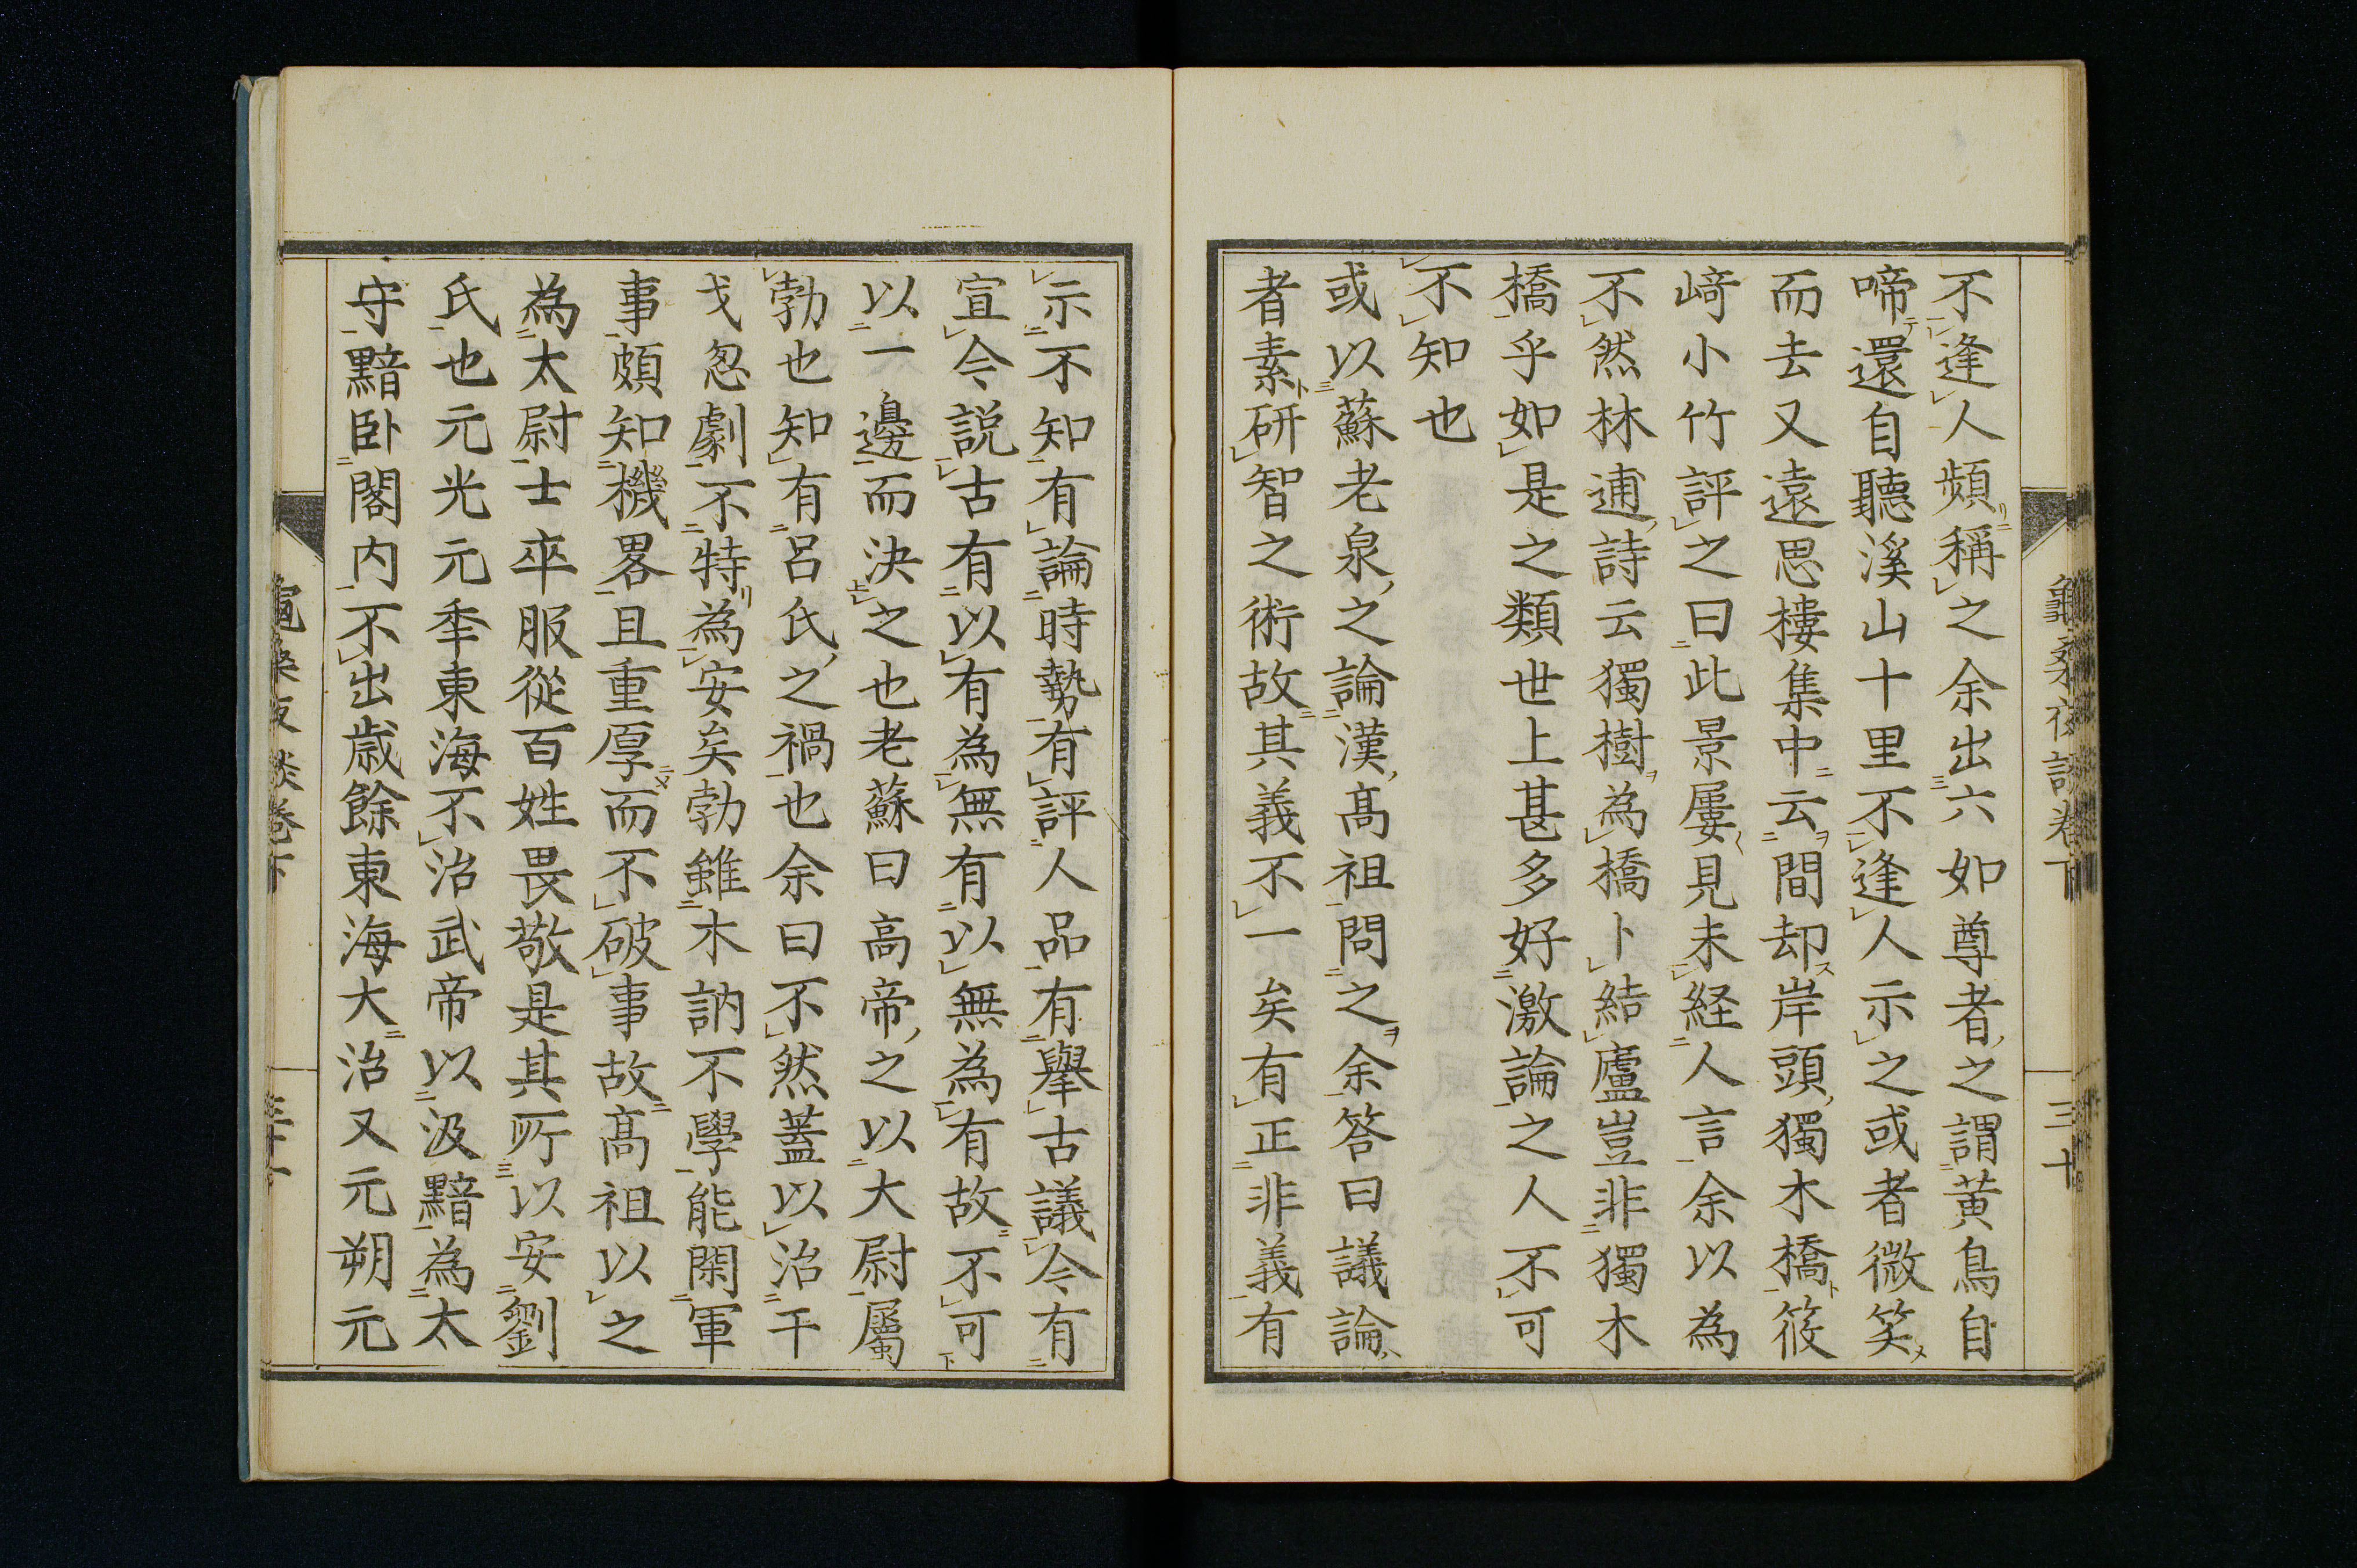 不逢人頻稱之余出六如尊者之謂黄鳥自
啼還自聽溪山十里不逢人示之或者微笑
而去又遠思樓集中云間却岸頭獨木橋筱
﨑小竹評之曰此景屢見未経人言余以為
不然林逋詩云獨樹為橋卜結廬豈非獨木
橋乎如是之類世上甚多好激論之人不可
不知也
或以蘇老泉之論漢髙祖問之余答曰議論
者素研智之術故其義不一矣有正非義有
示不知有論時勢有評人品有舉古議今有
宣今説古有以有為無有以無為有故不可
以一邊而決之也老蘇曰高帝之以大尉屬
勃也知有呂氏之禍也余曰不然蓋以治干
戈忽劇不特為安矣勃雖木訥不學能閑軍
事頗知機畧且重厚而不破事故髙祖以之
為太尉士卒服從百姓畏敬是其所以安劉
氏也元光元秊東海不治武帝以汲黯為太
守黯臥閣内不出歳餘東海大治又元朔元